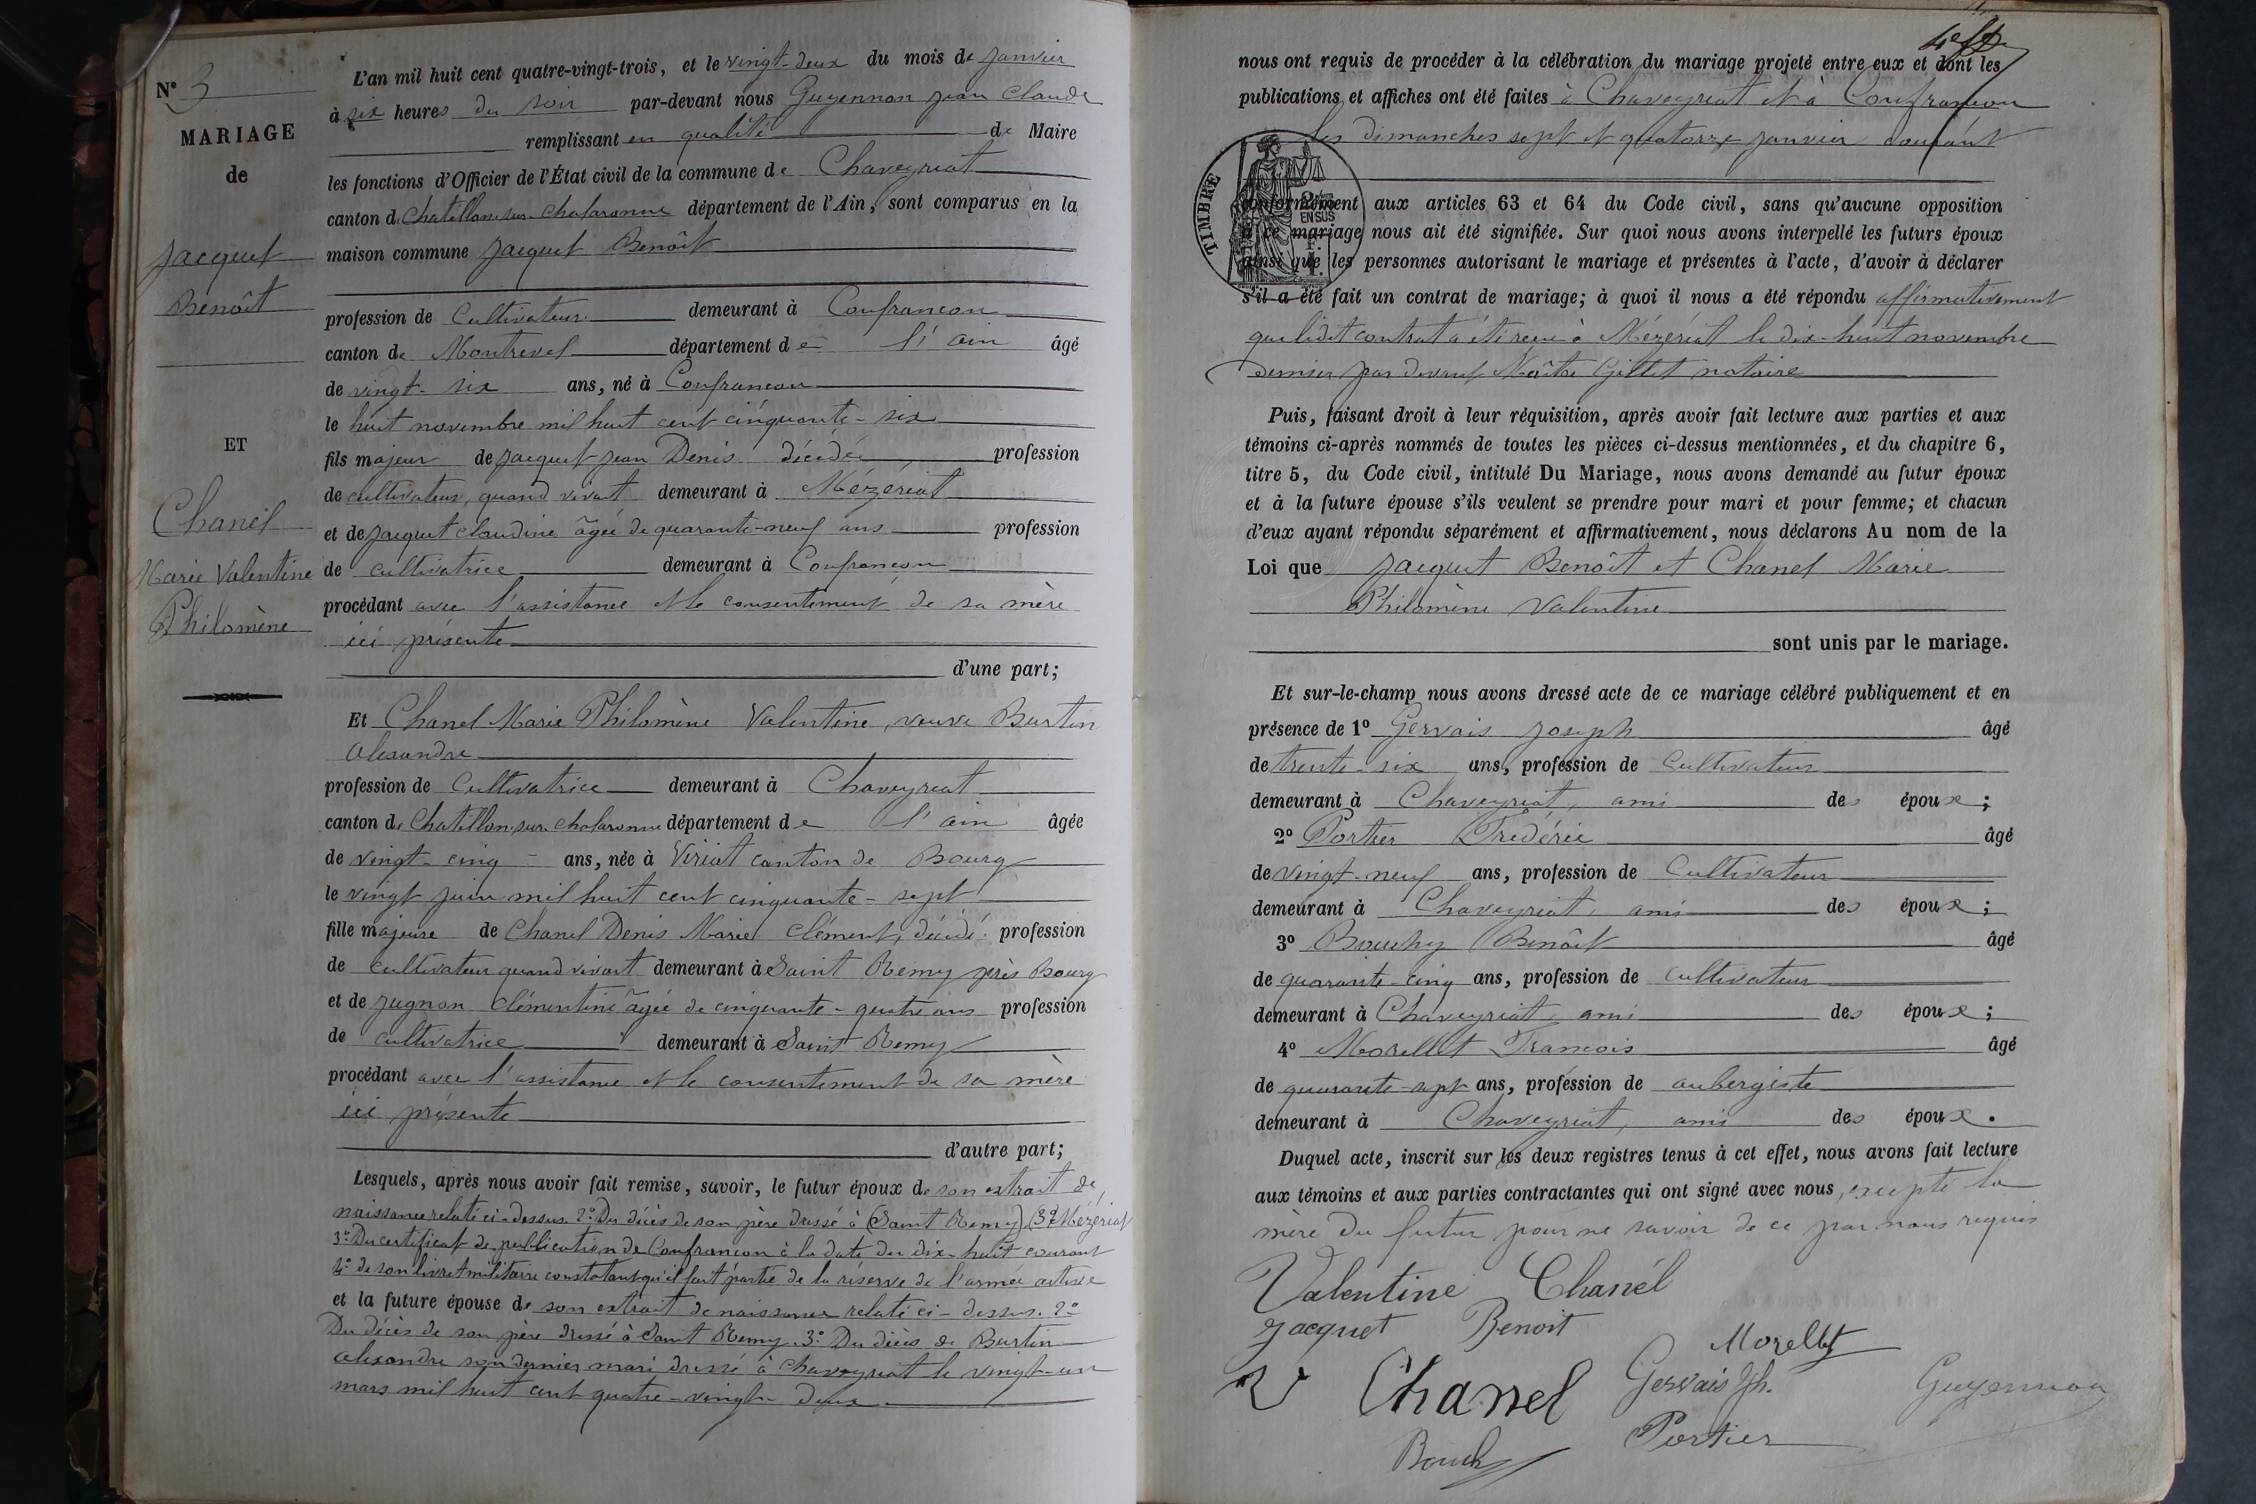 N° 3
MARIAGE
de
Jacquet
Benoît
ET
Chanel
Marie Valentine
Philomène
L'an mil huit cent quatre-vingt-trois, et le vingt-deux du mois de janvier
à six heures du soir par-devant nous Guyennon Jean Claude
remplissant en qualité de Maire
les fonctions d'Officier de l'État civil de la commune de Chaveyriat
canton de Chatillon-sur-Chalaronne département de l'Ain, sont comparus en la
maison commune Jacquet Benoît
profession de Cultivateur demeurant à Confrancon
canton de Montrevel département de l'ain âgé
de vingt-six ans, né à Confrancon
le huit novembre mil huit cent cinquante-six
fils majeur de Jacquet Jean Denis décédé profession
de cultivateur, quand vivait demeurant à Mézériat
et de Jacquet Claudine âgée de quarante-neuf ans profession
de cultivatrice demeurant à Confrancon
procédant avec l'assistance et le consentement de sa mère
ici présente
d'une part;
Et Chanel Marie Philomène Valentine, veuve Burtin
Alexandre
profession de Cultivatrice demeurant à Chaveyriat
canton de Chatillon-sur-Chalaronne département de l'ain âgée
de vingt-cinq ans, née à Viriat canton de Bourg
le vingt juin mil huit cent cinquante-sept
fille majeure de Chanel Denis Marie Clément, décédé profession
de cultivateur quand vivait demeurant à Saint Remy près Bourg
et de Jugnon Clémentine âgée de cinquante-quatre ans profession
de cultivatrice demeurant à Saint Remy
procédant avec l'assistance et le consentement de sa mère
ici présente
d'autre part;
Lesquels, après nous avoir fait remise, savoir, le futur époux de son extrait de
naissance relaté ci-dessus. 2° Du décès de son père dressé à (Saint Remy) Mézériat
3° Du certificat de publication de Confrancon à la date du dix-huit courant
4° de son livret militaire constatant qu'il fait partie de la réserve de l'armée active
et la future épouse de son extrait de naissance relaté ci-dessus. 2°
Du décès de son père dressé à Saint Remy. 3° Du décès de Burtin
Alexandre son dernier mari dressé à Chaveyriat le vingt-un
mars mil huit cent quatre-vingt-deux
nous ont requis de procéder à la célébration du mariage projeté entre eux et dont les
publications et affiches ont été faites à Chaveyriat et à Confrancon
Les dimanches sept et quatorze janvier courant
TIMBRE
2/10
EN SUS
conformément aux articles 63 et 64 du Code civil, sans qu'aucune opposition
à ce mariage nous ait été signifiée. Sur quoi nous avons interpellé les futurs époux
ainsi que les personnes autorisant le mariage et présentes à l'acte, d'avoir à déclarer
s'il a été fait un contrat de mariage; à quoi il nous a été répondu affirmativement
que ledit contrat a été reçu à Mézériat le dix-huit novembre
dernier par devant Maître Gillet notaire
Puis, faisant droit à leur réquisition, après avoir fait lecture aux parties et aux
témoins ci-après nommés de toutes les pièces ci-dessus mentionnées, et du chapitre 6,
titre 5, du Code civil, intitulé Du Mariage, nous avons demandé au futur époux
et à la future épouse s'ils veulent se prendre pour mari et pour femme; et chacun
d'eux ayant répondu séparément et affirmativement, nous déclarons Au nom de la
Loi que Jacquet Benoît et Chanel Marie
Philomène Valentine
sont unis par le mariage.
Et sur-le-champ nous avons dressé acte de ce mariage célébré publiquement et en
présence de 1° Gervais Joseph âgé
de trente-six ans, profession de Cultivateur
demeurant à Chaveyriat, ami des époux;
2° Portier Frédéric âgé
de vingt-neuf ans, profession de Cultivateur
demeurant à Chaveyriat, ami des époux;
3° Bouchy Benoît âgé
de quarante-cinq ans, profession de cultivateur
demeurant à Chaveyriat, ami des époux;
4° Morellet François âgé
de quarante-sept ans, profession de aubergiste
demeurant à Chaveyriat, ami des époux.
Duquel acte, inscrit sur les deux registres tenus à cet effet, nous avons fait lecture
aux témoins et aux parties contractantes qui ont signé avec nous, excepté la
mère du futur pour ne savoir de ce par nous requis
Valentine Chanél
Jacquet Benoit
Morellet
Chanel
Gervais Jph.
Guyennon
Portier
Bouchy